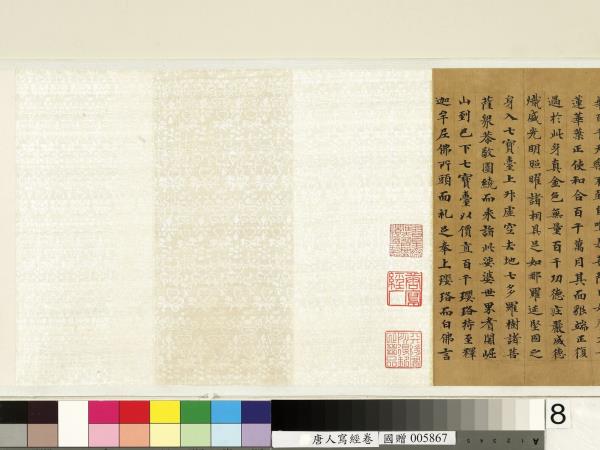 蓮華葉正使和合百千萬月其面貌端正復
過於此身真金色無量百千功德莊嚴威德
熾盛光明照曜諸相具足如那羅延堅固之
身入七寶臺上昇虛空去地七多羅樹諸菩
薩眾恭敬圍繞而來詣此娑婆世界耆闍崛
山到已下七寶臺以價直百千瓔珞持至釋
迦牟尼佛所頭面礼足奉上瓔珞而白佛言
唐人寫經卷 國贈 005867
8